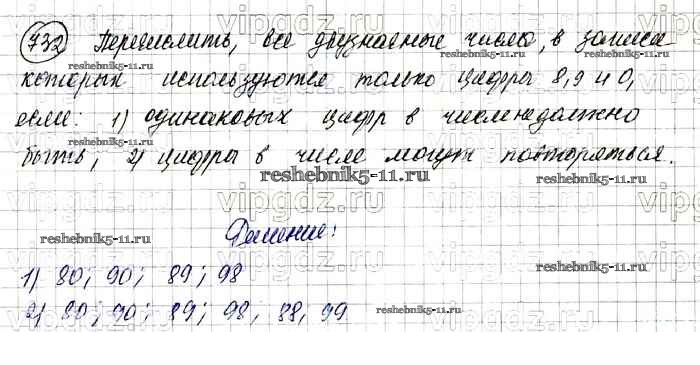 732 Перечислить, все двузначные числа, в записи
которых используются только цифры 8, 9 и 0,
если: 1) одинаковых цифр в числе не должно
быть; 2) цифры в числе могут повторяться.
reshebnik5-11.ru
vipgdz.ru
Решение:
1) 80; 90; 89; 98
2) 80; 90; 89; 98, 88, 99